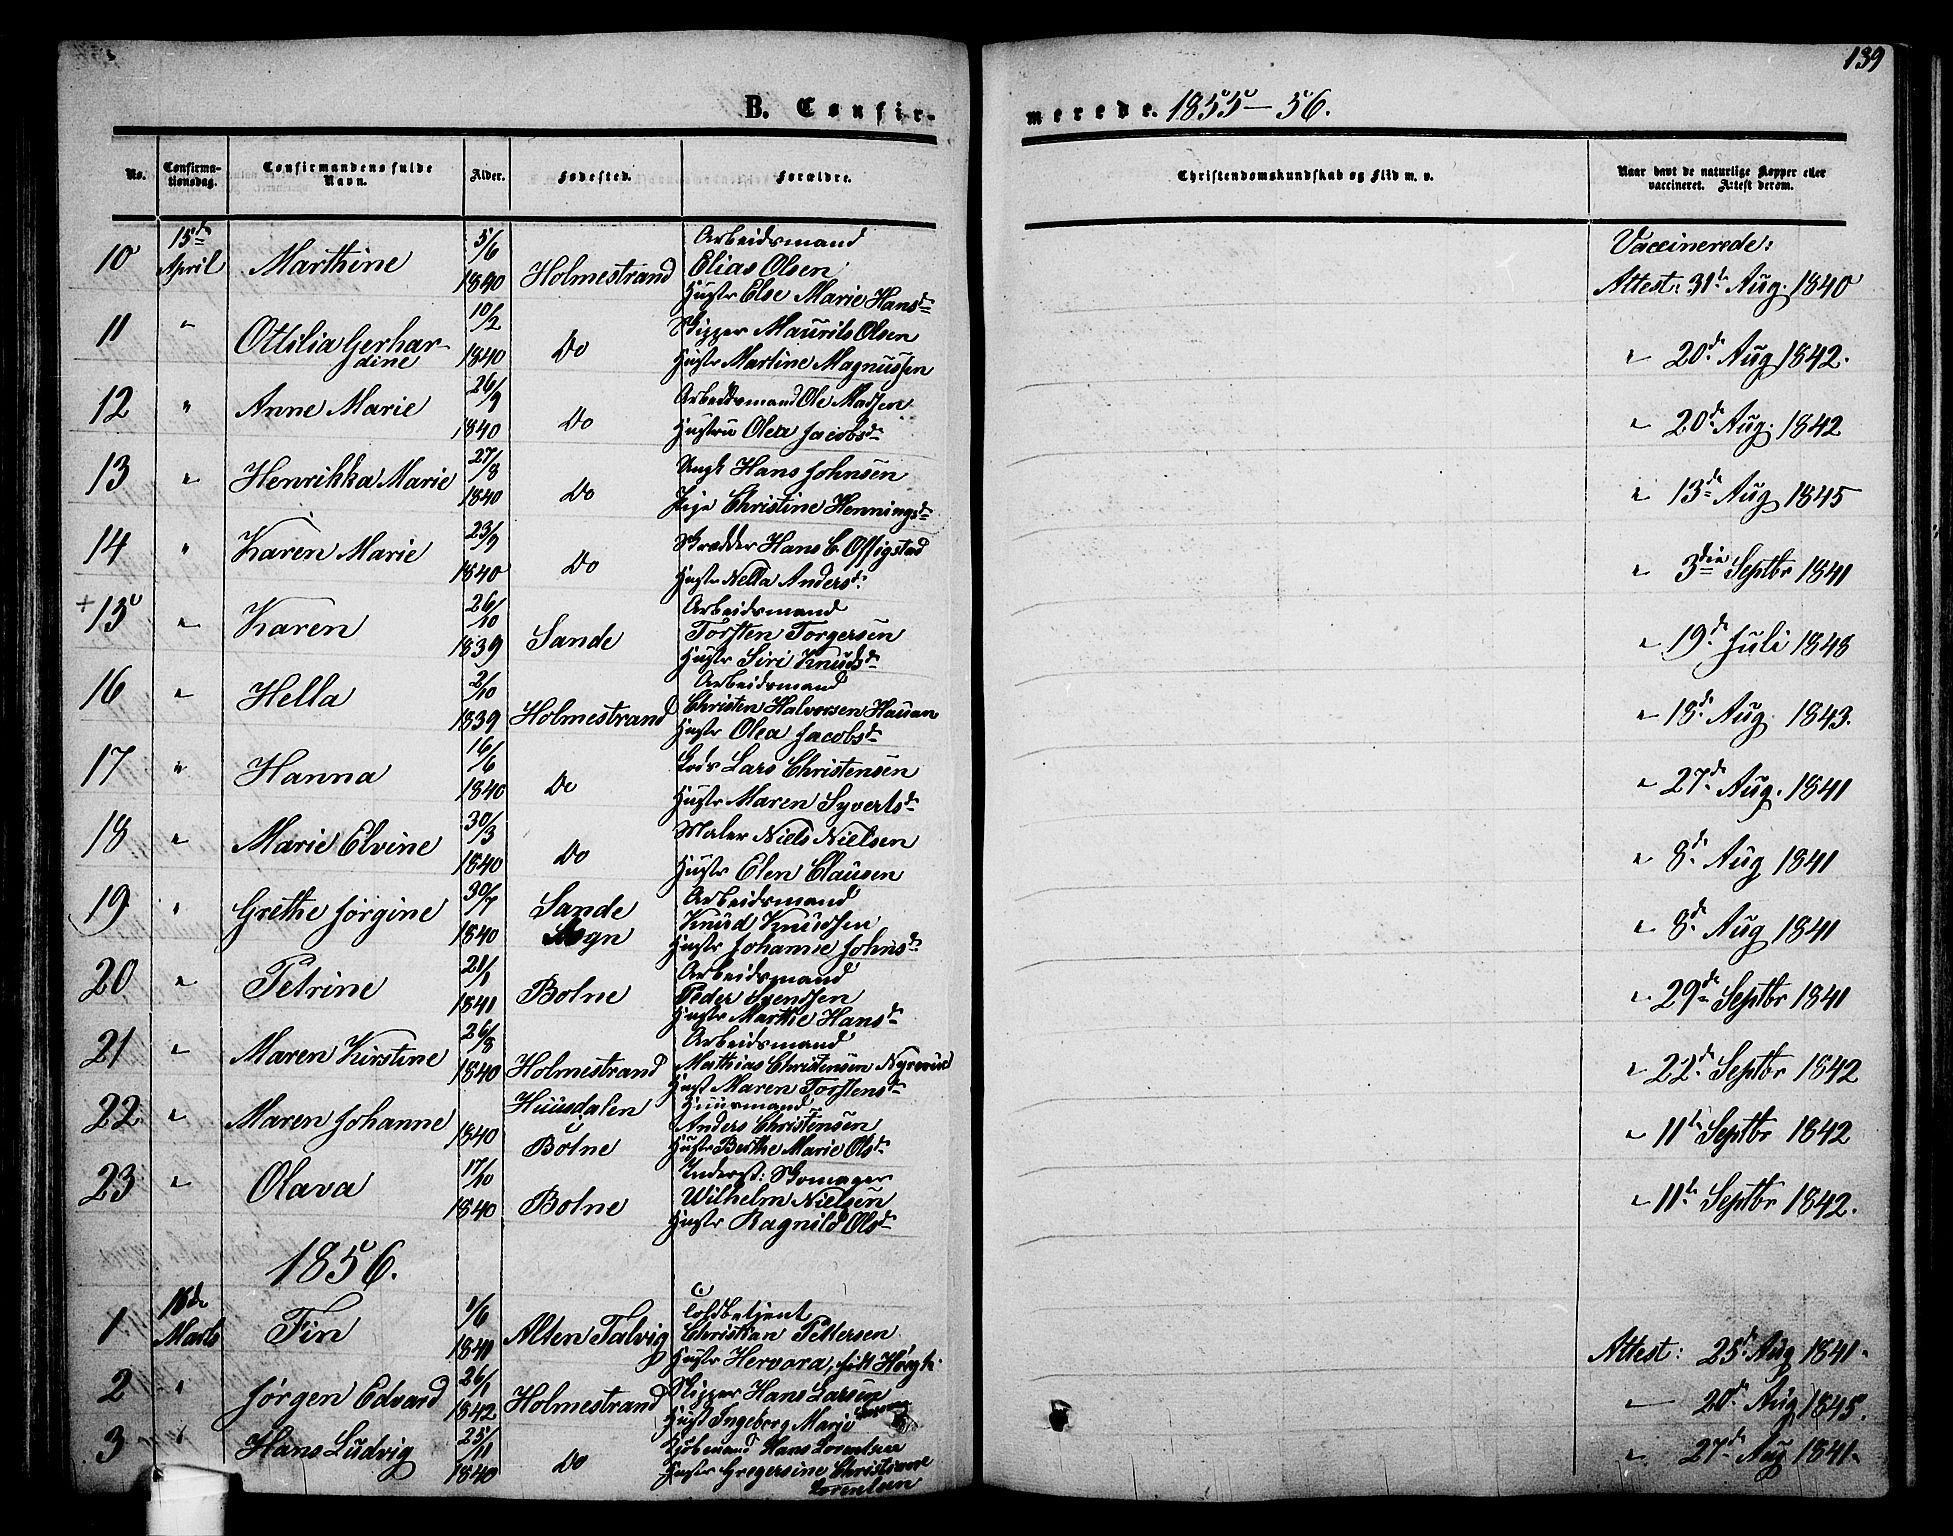 139
B. Confir-
merede. 1855-56.
No.
Confirma-
tionsdag.
Confirmandens fulde
Navn.
Alder.
Fødested.
Forældre.
Christendomskundskab og Flid m. v.
Naar havt de naturlige Kopper eller
vaccineret. Attest derom.
10 15de April Marthine 5/6 1840 Holmestrand Arbeidsmand
Elias Olsen
Hustr Else Marie Hansd. Vaccinerede:
Attest: 31te Aug. 1840
11 " Ottilia Gerhar-
dine 10/2 1840 Do Skipper Maurits Olsen
Hustr Martine Magnussen " 20de Aug 1842.
12 " Anne Marie 26/9 1840 Do Arbeidsmand Ole Madsen
Hustru Olea Jacobsd. " 20de Aug. 1842
13 " Henrikka Marie 27/8 1840 Do Ungk Hans Johnsen
Pige Christine Henningsd. " 13de Aug 1845
14 " Karen Marie 23/9 1840 Do Skrædder Hans C. Offigstad
Hustr Nella Andersd. " 3die Septbr 1841
+ 15 " Karen 26/10 1839 Sande Arbeidsmand
Torsten Torgersen
Hustr Siri Knudsd. " 19de Juli 1848
16 " Hella 2/10 1839 Holmestrand Arbeidsmand
Christen Halvorsen Hauan
Hustr Olea Jacobsd. " 18de Aug. 1843.
17 " Hanna 16/6 1840 Do Lods Lars Christensen
Hustr Maren Syvertsd. " 27de Aug. 1841
18 " Marie Elvine 30/3 1840 Do Maler Niels Nielsen
Hustr Elen Clausen " 8de Aug 1841
19 " Grethe Jørgine 30/7 1840 Sande
Sogn Arbeidsmand
Knud Knudsen
Hustr Johanne Johnsd. " 8de Aug 1841
20 " Petrine 21/1 1841 Botne Arbeidsmand
Peder Svendsen
Hustr Marthe Hansd. " 29de Septbr 1841
21 " Maren Kirstine 26/8 1840 Holmestrand Arbeidsmand
Mathias Christensen
Hust Maren Torstensd. " 22de Septbr 1842
22 " Maren Johanne 1840 Huusdalen
i
Botne Huusmand
Anders Christensen
Hustr Berthe Marie Olsd. " 11te Septbr 1842
23 " Olava 17/10 1840 Botne Inderst: Skomager
Wilhelm Nielsen
Hustr Ragnild Olsd. " 11te Septbr 1842.
1856.
1 16de Marts Fin 1/6 1841 Alten Talvig Toldbetjent
Christian Pettersen
Hustr Hervora, født Attest: 25de Aug 1841.
2 " Jørgen Edvard 26/1 1842 Holmestrand Skipper Hans Larsen
Hust Ingeborg Marie " 20de Aug 1845.
3 " Hans Ludvig 25/11 1840 Do Kjøbmand Hans Lorentsen
Hustr Gregersine Christiane
Lorentsen " 27de Aug 1841.